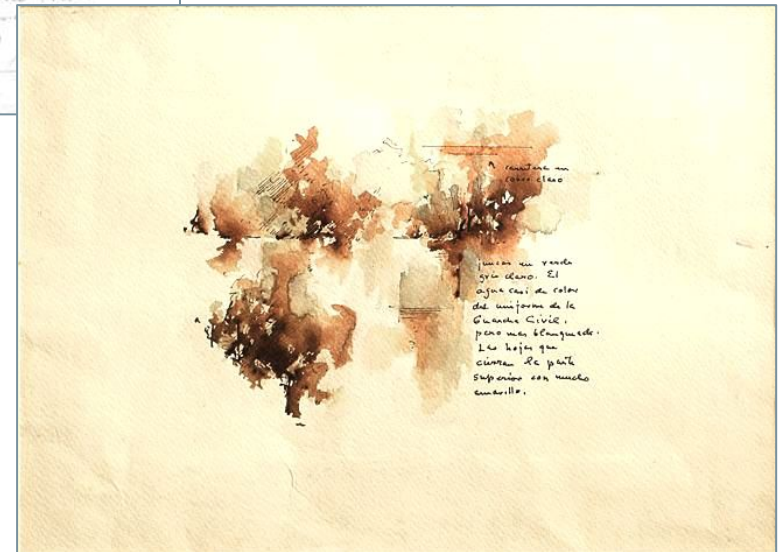 carretera en
cobre claro
juncos en verde
gris claro. El
agua casi de color
del uniforme de la
Guardia Civil,
pero mas blanqueado.
Las hojas que
cierran la parte
superior con mucho
amarillo.